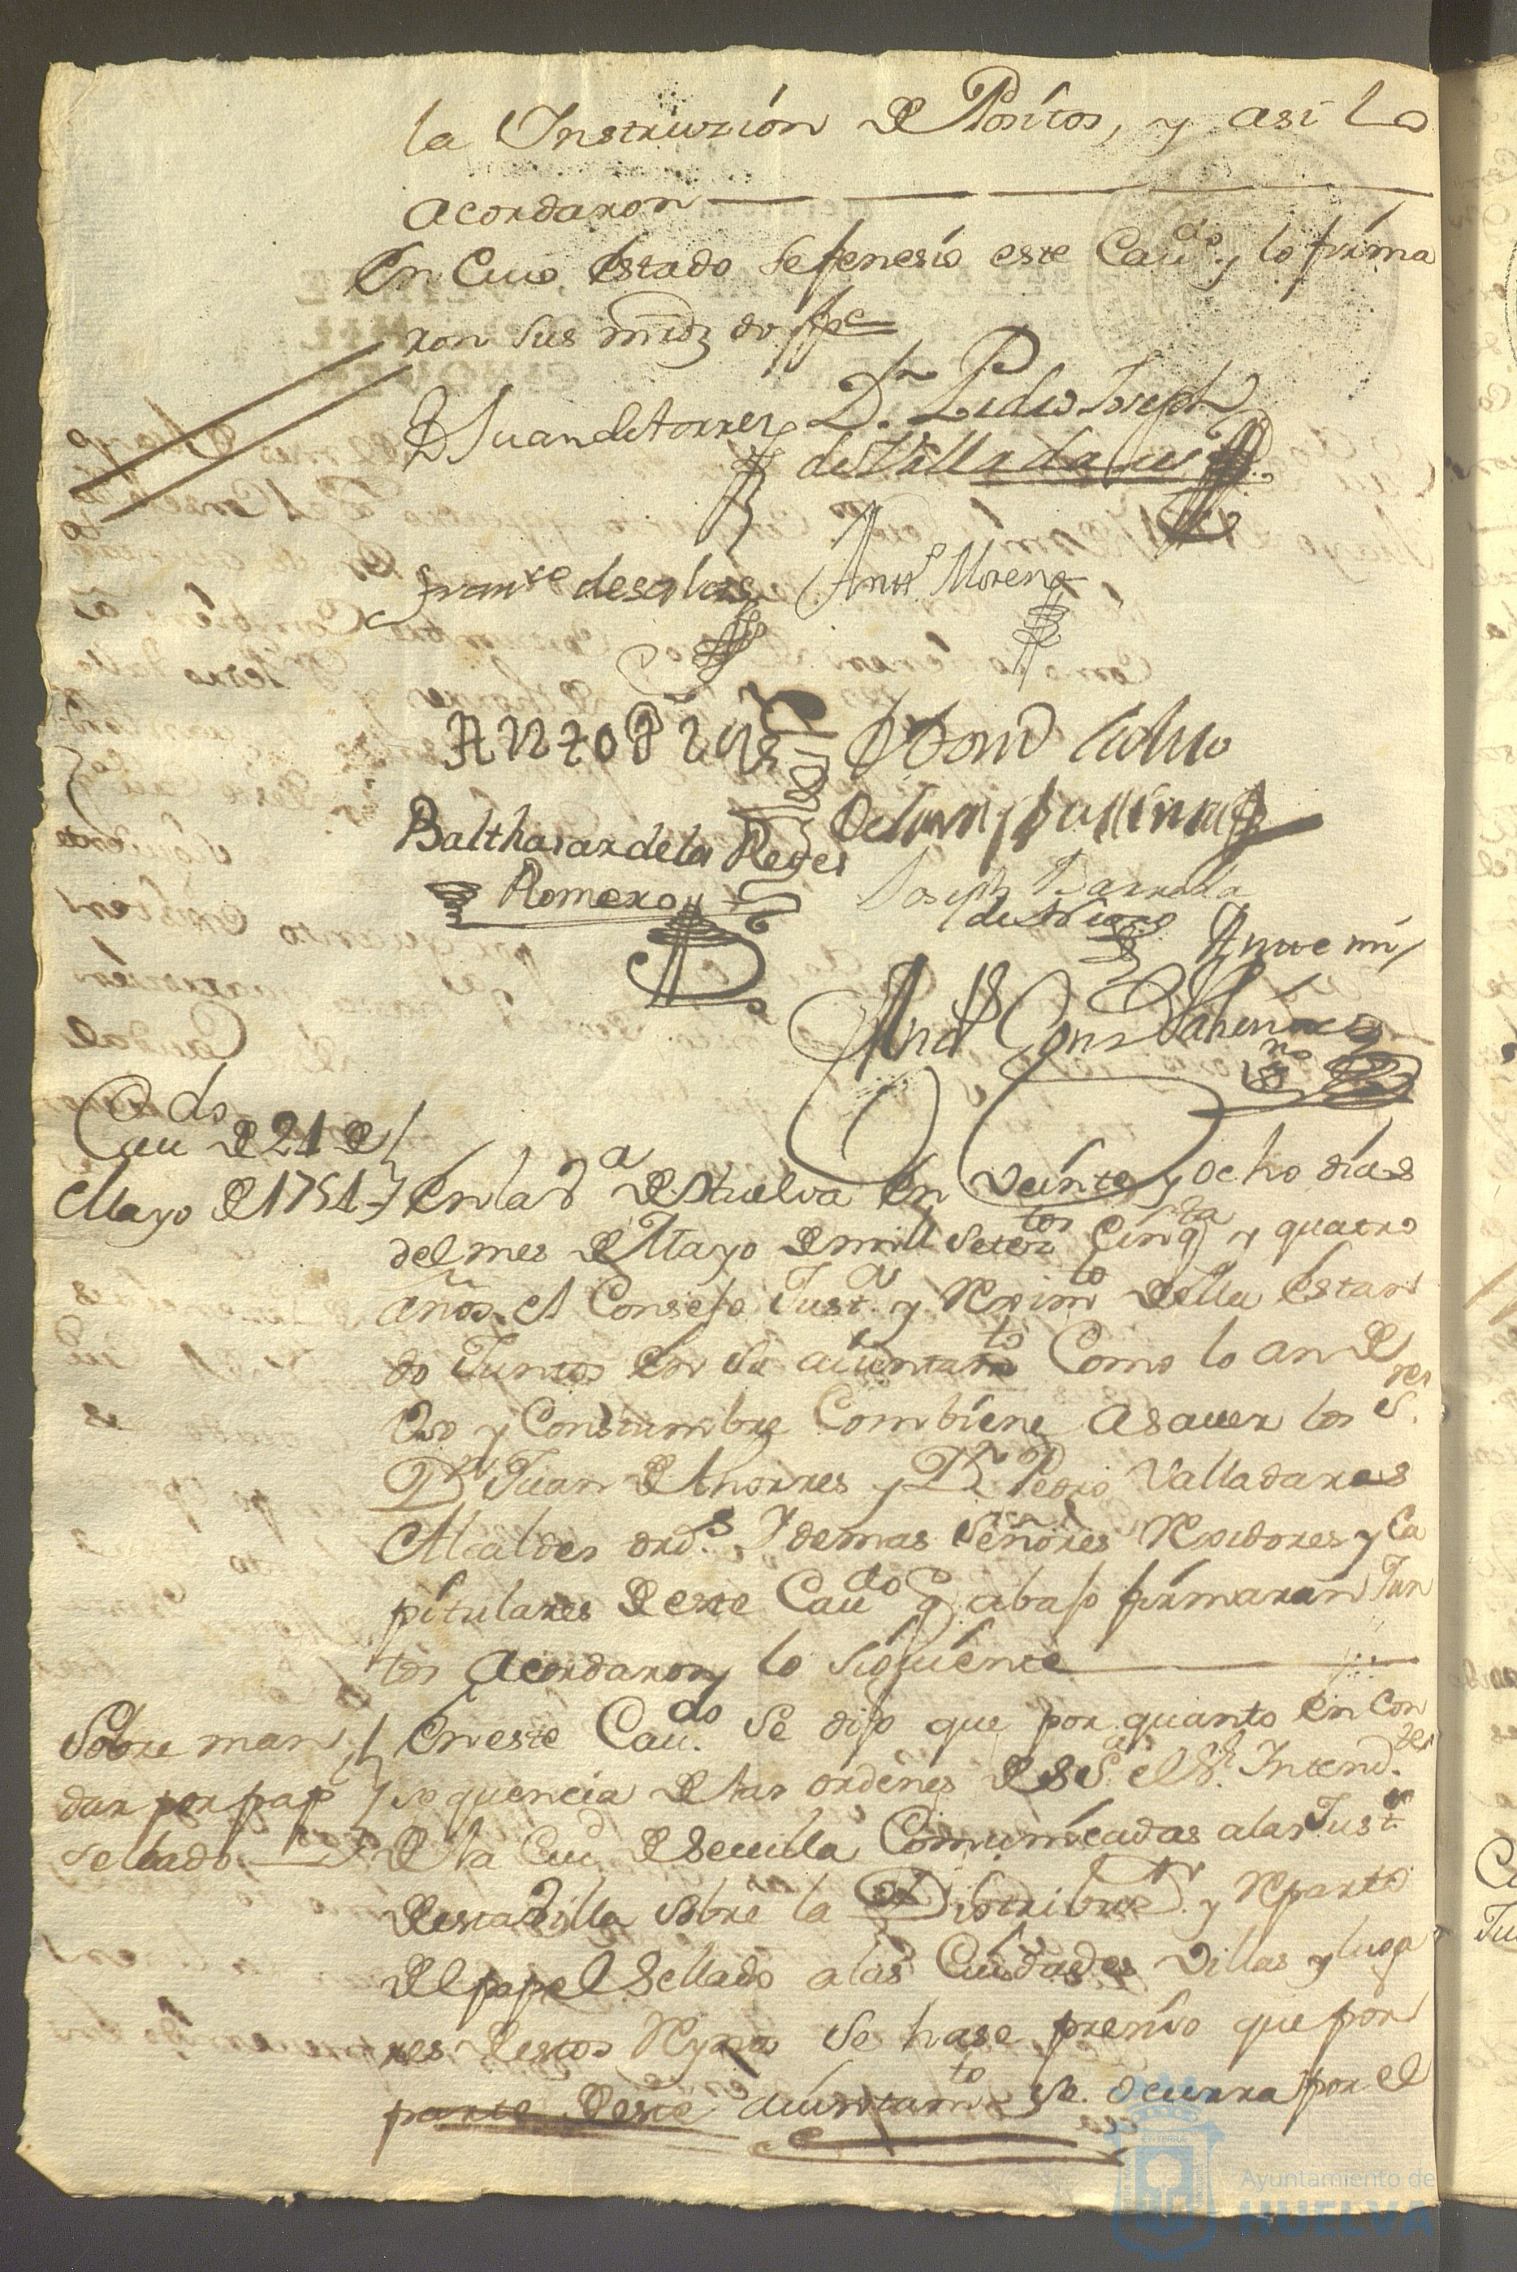 la Instruzion de Positos, y asi lo
acordaron
En Cuio estado se fenesio este Caudo y lo firma
ron sus mrds doy fee
D Juan de torres Dn Pedro Joseph
de Villadares
Franco de Salas Anto Moreno
Balthasar de los Reyes
Romero
Joseph Barreda
Ante mi
Caudo de 21 de
Mayo de 1754
En la Va de Huelva en Veinte y ocho dias
del mes de Mayo de mill seteztos cinqta y quatro
años el Consejo Justa y Reximto della estan
do Juntos en su aiuntamto Como lo an de
Uso y Constumbre Combiene asauer los Sres
Dn Juan de thorres y Dn Pedro Valladares
Alcaldes ords Y demas Señores Rexidores y Ca
pitulares de este Caudo q abajo firmaran Jun
tos acordaron lo siguiente
Sobre man
dar por pap
sellado
En este Caudo se dijo que por quanto en Con
sequencia de las ordenes de S Sa el Sr Intend
de la Ciud de Seuilla Comunicadas a las Justas
de esta Villa sobre la Distribuon y Reparto
del papel Sellado a las Ciudades Villas y luga
res de estos Reynos se hase presiso que por
parte deste aiuntamto se ocurra por el
Ayuntamiento de
HUELVA